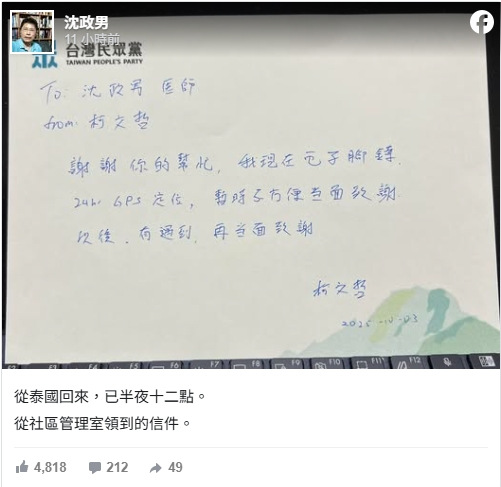 沈政男
11 小時前
台灣民眾黨
TAIWAN PEOPLE'S PARTY
To: 沈政男 医師
from: 柯文哲
謝謝你的幫忙, 我現在电子腳鐐,
24hr GPS定位, 暫時不方便当面致謝
以後, 有遇到, 再当面致謝
柯文哲
F4
F5
F6
F7
F8
F9
F10
F11
F12
從泰國回來，已半夜十二點。
從社區管理室領到的信件。
4,818
212
49